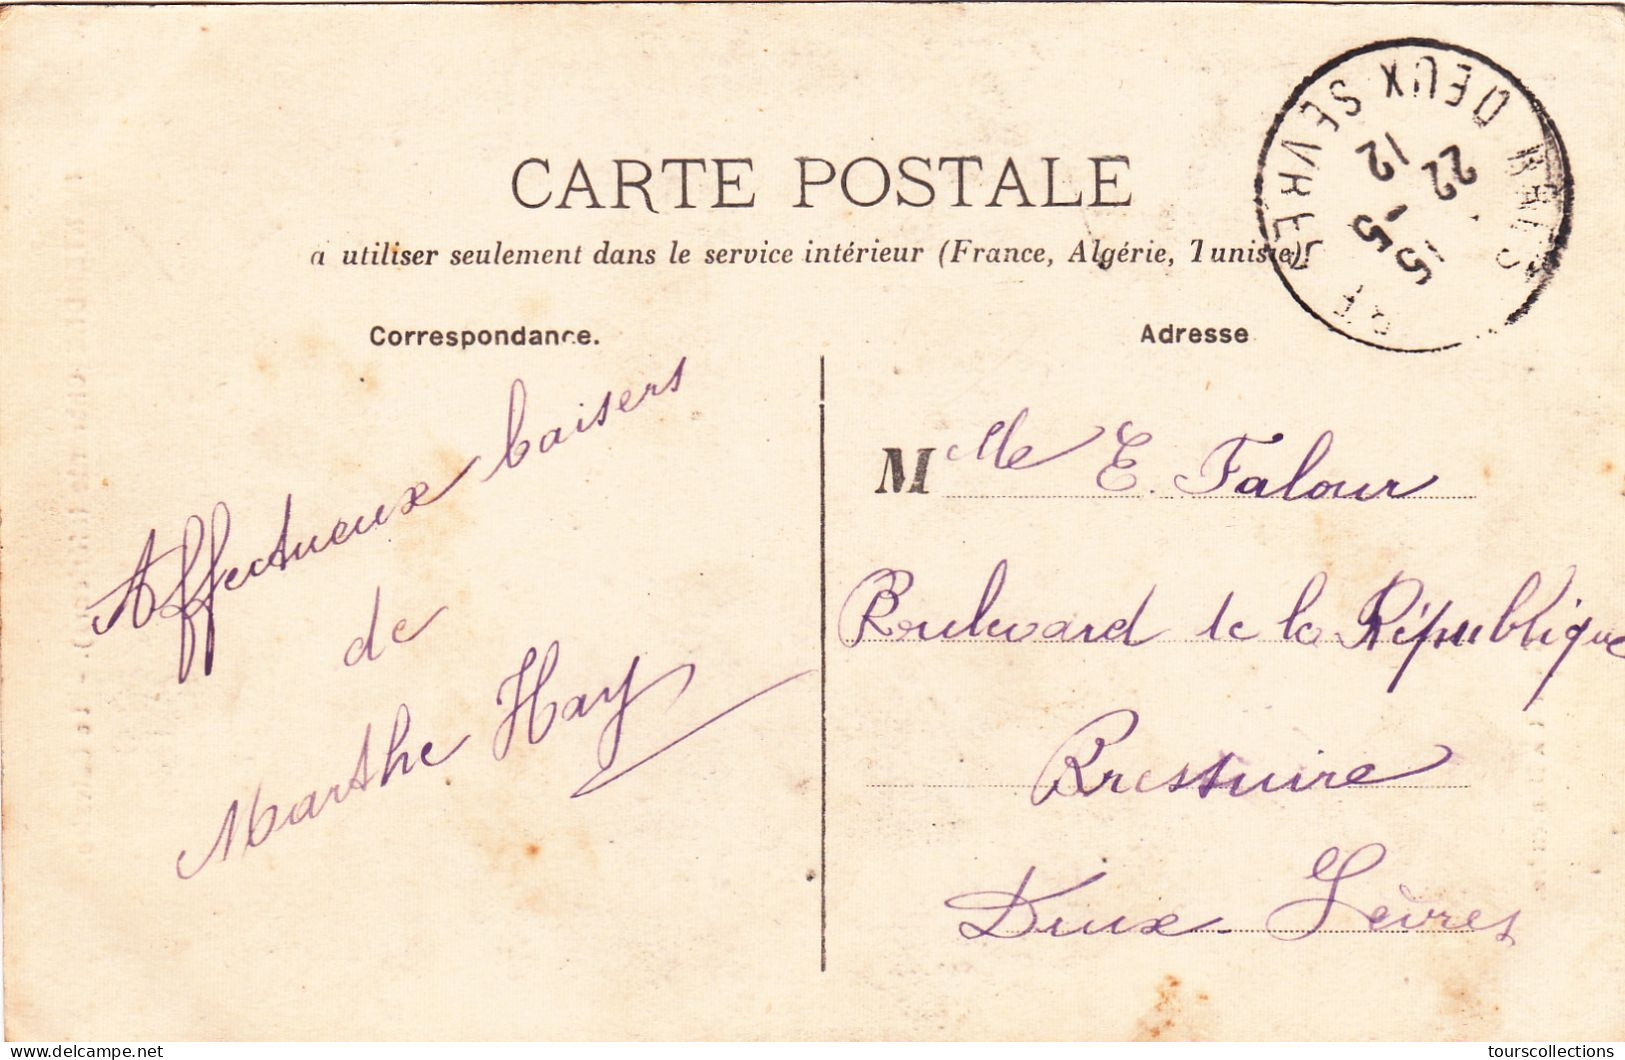 CARTE POSTALE
a utiliser seulement dans le service intérieur (France, Algérie, Tunisie)
Correspondance.
Affectueux baisers
de
Marthe Hay
Adresse
Mlle E. Falour
Boulevard de la République
Bressuire
Deux-Sèvres
DEUX SEVRES
15 - 5
22
12
delcampe.net
tourscollections